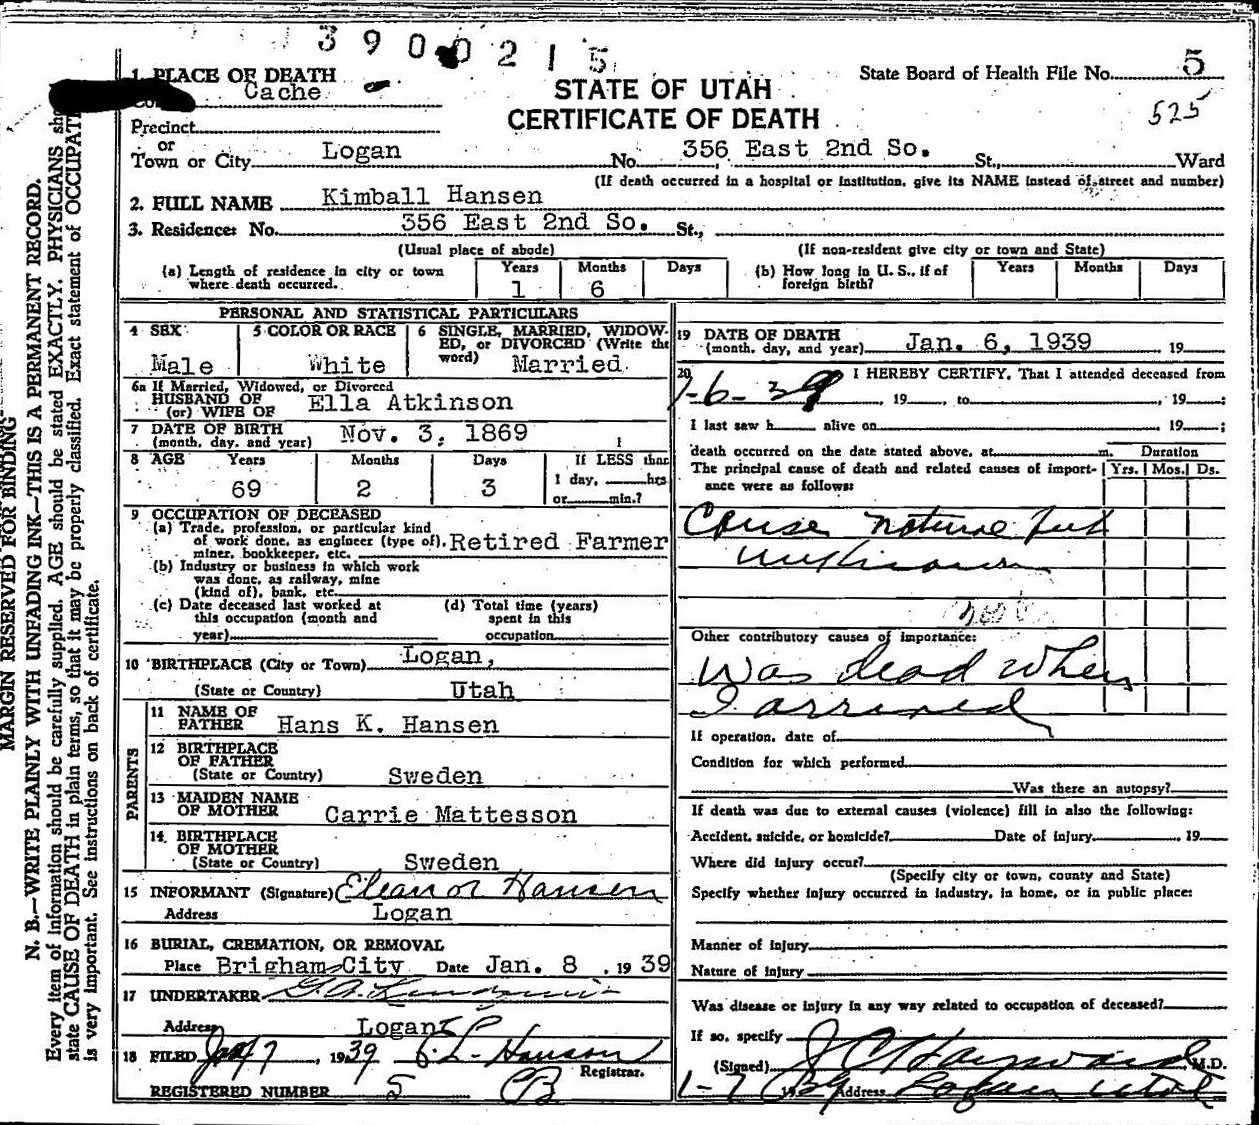 3900215
1. PLACE OF DEATH
Cache
STATE OF UTAH
CERTIFICATE OF DEATH
State Board of Health File No. 5
525
Precinct
or
Town or City Logan No. 356 East 2nd So. St., Ward
(If death occurred in a hospital or institution, give its NAME instead of street and number)
2. FULL NAME Kimball Hansen
3. Residence: No. 356 East 2nd So. St.,
(Usual place of abode) (If non-resident give city or town and State)
(a) Length of residence in city or town where death occurred. Years 1 Months 6 Days
(b) How long in U. S., if of foreign birth? Years Months Days
PERSONAL AND STATISTICAL PARTICULARS
4 SEX Male
5 COLOR OR RACE White
6 SINGLE, MARRIED, WIDOWED, or DIVORCED (Write the word) Married
6a If Married, Widowed, or Divorced
HUSBAND OF
(or) WIFE OF Ella Atkinson
7 DATE OF BIRTH
(month, day, and year) Nov. 3, 1869
8 AGE Years 69 Months 2 Days 3
If LESS than
1 day, hrs
or min.?
9 OCCUPATION OF DECEASED
(a) Trade, profession, or particular kind
of work done, as engineer (type of),
miner, bookkeeper, etc. Retired Farmer
(b) Industry or business in which work
was done, as railway, mine
(kind of), bank, etc.
(c) Date deceased last worked at
this occupation (month and
year)
(d) Total time (years)
spent in this
occupation
10 BIRTHPLACE (City or Town) Logan,
(State or Country) Utah
PARENTS
11 NAME OF
FATHER Hans K. Hansen
12 BIRTHPLACE
OF FATHER
(State or Country) Sweden
13 MAIDEN NAME
OF MOTHER Carrie Mattesson
14 BIRTHPLACE
OF MOTHER
(State or Country) Sweden
15 INFORMANT (Signature) Eleanor Hansen
Address Logan
16 BURIAL, CREMATION, OR REMOVAL
Place Brigham City Date Jan. 8, 1939
17 UNDERTAKER
Address Logan
18 FILED Jan 7, 1939 Hanson
Registrar.
REGISTERED NUMBER 5
19 DATE OF DEATH
(month, day, and year) Jan. 6, 1939 , 19
20 I HEREBY CERTIFY, That I attended deceased from
1-6-39 , 19 , to , 19 ;
I last saw h alive on 19 ;
death occurred on the date stated above, at m.
The principal cause of death and related causes of importance were as follows:
Duration
Yrs. Mos. Ds.
Cause natural but
unknown
Other contributory causes of importance:
Was dead when
I arrived
If operation, date of
Condition for which performed
Was there an autopsy?
If death was due to external causes (violence) fill in also the following:
Accident, suicide, or homicide? Date of injury 19
Where did injury occur?
(Specify city or town, county and State)
Specify whether injury occurred in industry, in home, or in public place:
Manner of injury
Nature of injury
Was disease or injury in any way related to occupation of deceased?
If so, specify
(Signed) J C Hayward, M.D.
1-7 1939 Address Logan Utah
MARGIN RESERVED FOR BINDING
N. B.—WRITE PLAINLY WITH UNFADING INK—THIS IS A PERMANENT RECORD.
Every item of information should be carefully supplied. AGE should be stated EXACTLY. PHYSICIANS
state CAUSE OF DEATH in plain terms, so that it may be properly classified. Exact statement of
is very important. See instructions on back of certificate.